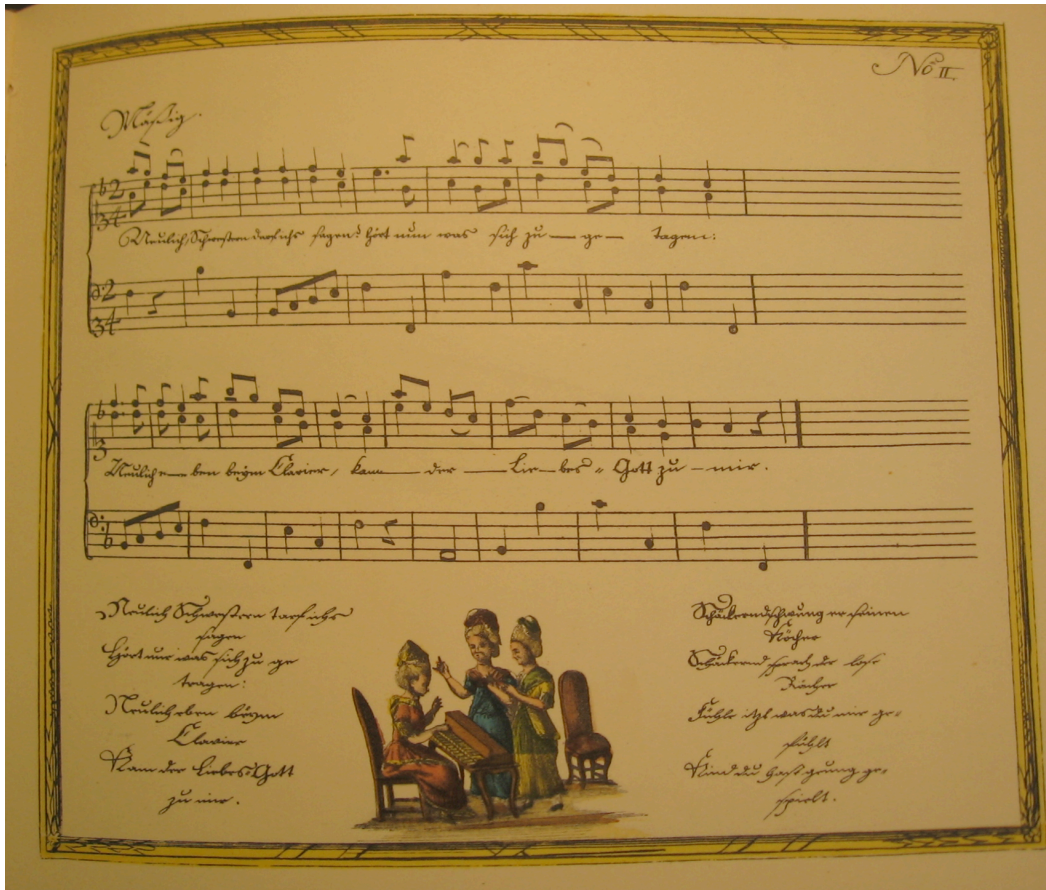 No II.
Mäßig.
Neulich Schwestern darf ichs sagen? hört nun was sich zu — ge — tragen:
Neulich e — ben beÿm Clavier, kam — der — Lie — bes = Gott zu — mir.
Neulich Schwestern darf ichs
sagen
hört nur was sich zu ge
tragen:
Neulich eben beÿm
Clavier
Kam der Liebes Gott
zu mir.
Schäckernd schwung er seinen
Köcher
Schäckernd sprach der lose
Rächer
Fühle itzt was du mir ge=
fühlt
Kind du hast genug ge=
spielt.